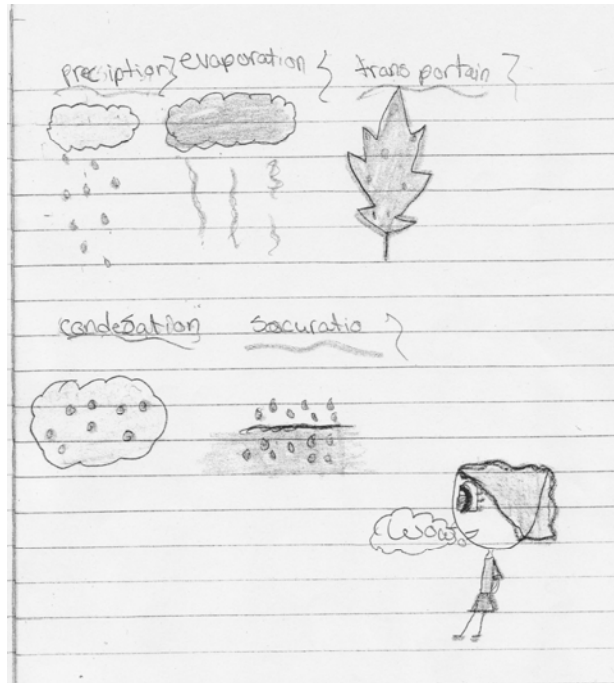 preciption evaporation transportain
condesation sacuratio
woow